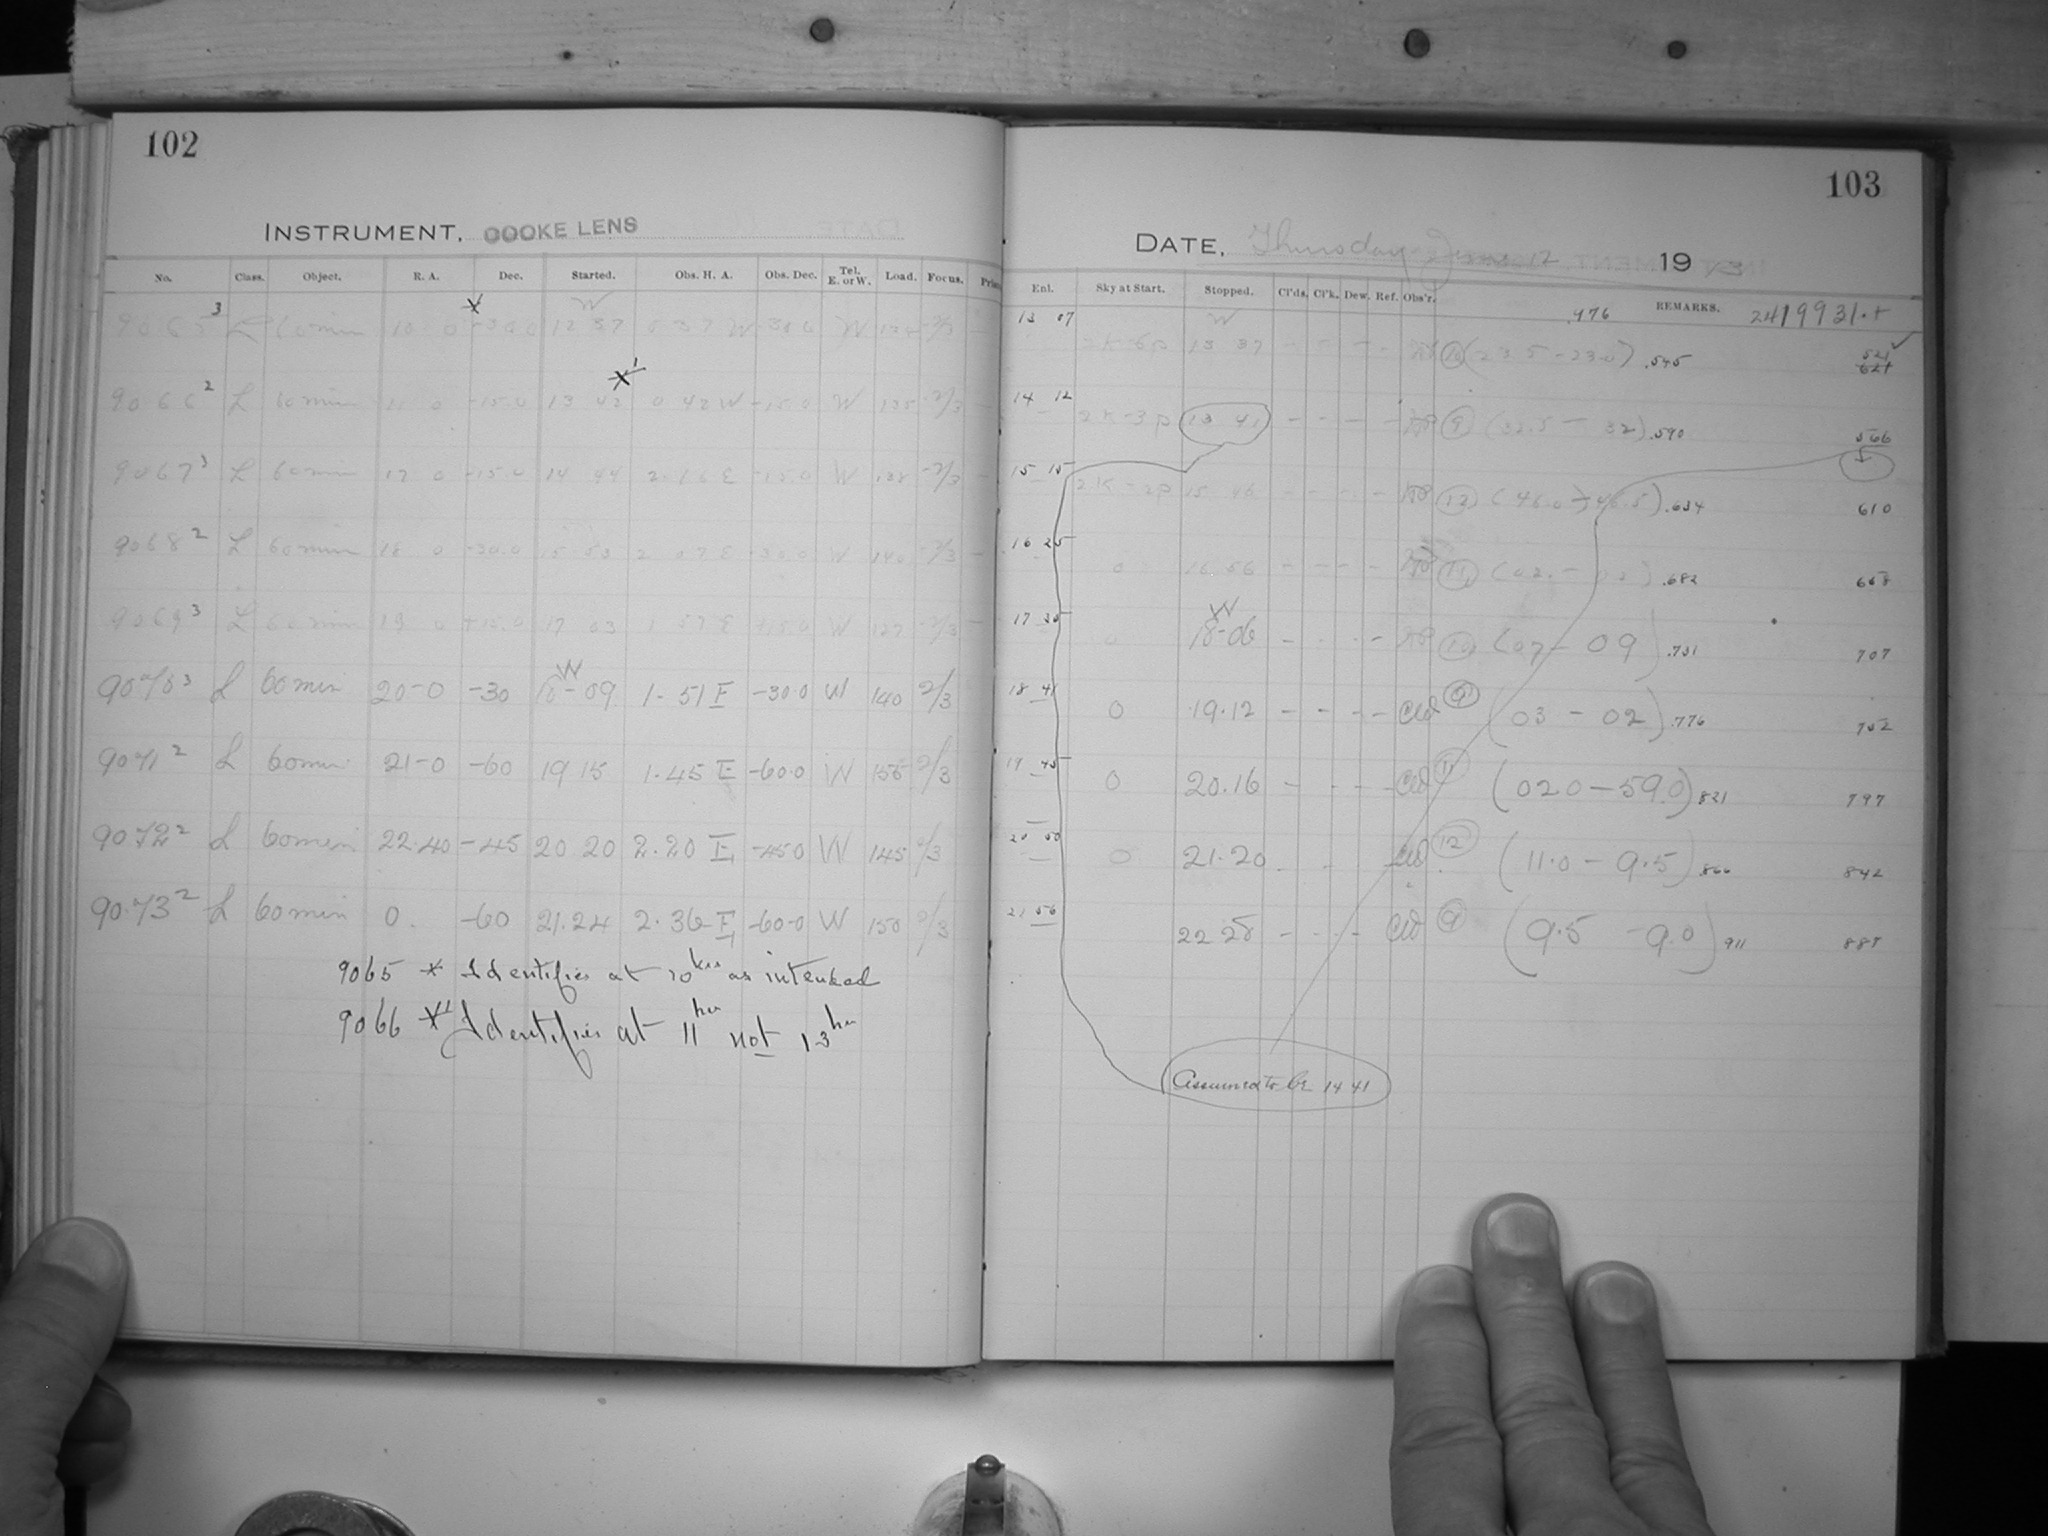 102
INSTRUMENT, COOKE LENS
No. Class. Object. R. A. Dec. Started. Obs. H. A. Obs. Dec. Tel. E. or W. Load. Focus.
9065 3 L 60 min 10 0 -30.0 12 37 0 37 W -30.0 W
9066 2 L 60 min 0 -15.0 13 42 0 42 W -15.0 W 135 2/3
9067 3 L 60 min 17 0 -15.0 14 44 2.16 E -15.0 W 2/3
9068 2 L 60 min 18 0 -30.0 15 53 2 07 E -30.0 W 140 2/3
9069 3 L 60 min 19 0 +15.0 17 03 1 57 E +15.0 W 127 2/3
9070 3 L 60 min 20-0 -30 18-09 1-51 E -30.0 W 140 2/3
9071 2 L 60 min 21-0 -60 19 15 1.45 E -60.0 W 155 2/3
9072 2 L 60 min 22.40 -45 20 20 2.20 E -45.0 W 145 2/3
9073 2 L 60 min 0. -60 21.24 2.36 E -60.0 W 150 2/3
9065 * Identifies at 10 hrs as intended
9066 *1 Identifies at 11 hr not 13 hr
103
DATE, Thursday June 12 19
Enl. Sky at Start. Stopped. Cl'ds. Cl'k. Dew. Ref. Obs'r. .476 REMARKS. 2419931.+
13 07 2K-6p 13 37 - - - - (23.5-23.0) .545 521 621
14 12 2K-3p 13 41 - - - - 9 (32.5-32) .590 566
15 15 2K-2p 15 46 - - - - 12 (46.0-46.5) .634 610
16 25 0 16 56 - - - - 11 .682 658
17 35 0 18-06 - - - - 10 (07-09) .731 707
18 41 0 19.12 - - - - CW 9 (03-02) .776 752
19 45 0 20.16 - - - - CW 11 (02.0-59.0) 821 797
20 50 0 21.20 CW 12 (11.0-9.5) .866 842
21 56 22 28 - - - - CW 9 (9.5-9.0) 911 887
Assumed to be 14 41